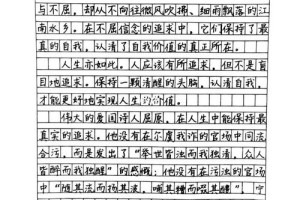 与不屈。却从不向往微风吹拂、细雨飘落的江
南水乡。在不屈信念的追求中，它们保持了最
真的自我，认清了自我价值的真正所在。
人生亦如此。人应该有所追求，但不是盲
目地追求。保持一颗清醒的头脑，认清自我，
才能更好地实现人生的价值。
伟大的爱国诗人屈原，在人生中能保持最
真实的追求。他没有在尔虞我诈的官场中同流
合污，而是发出了“举世皆浊而我独清，众人
皆醉而我独醒”的感慨。他没有在污浊的官场
中“随其流而扬其波，哺其糟而啜其醨”，宁